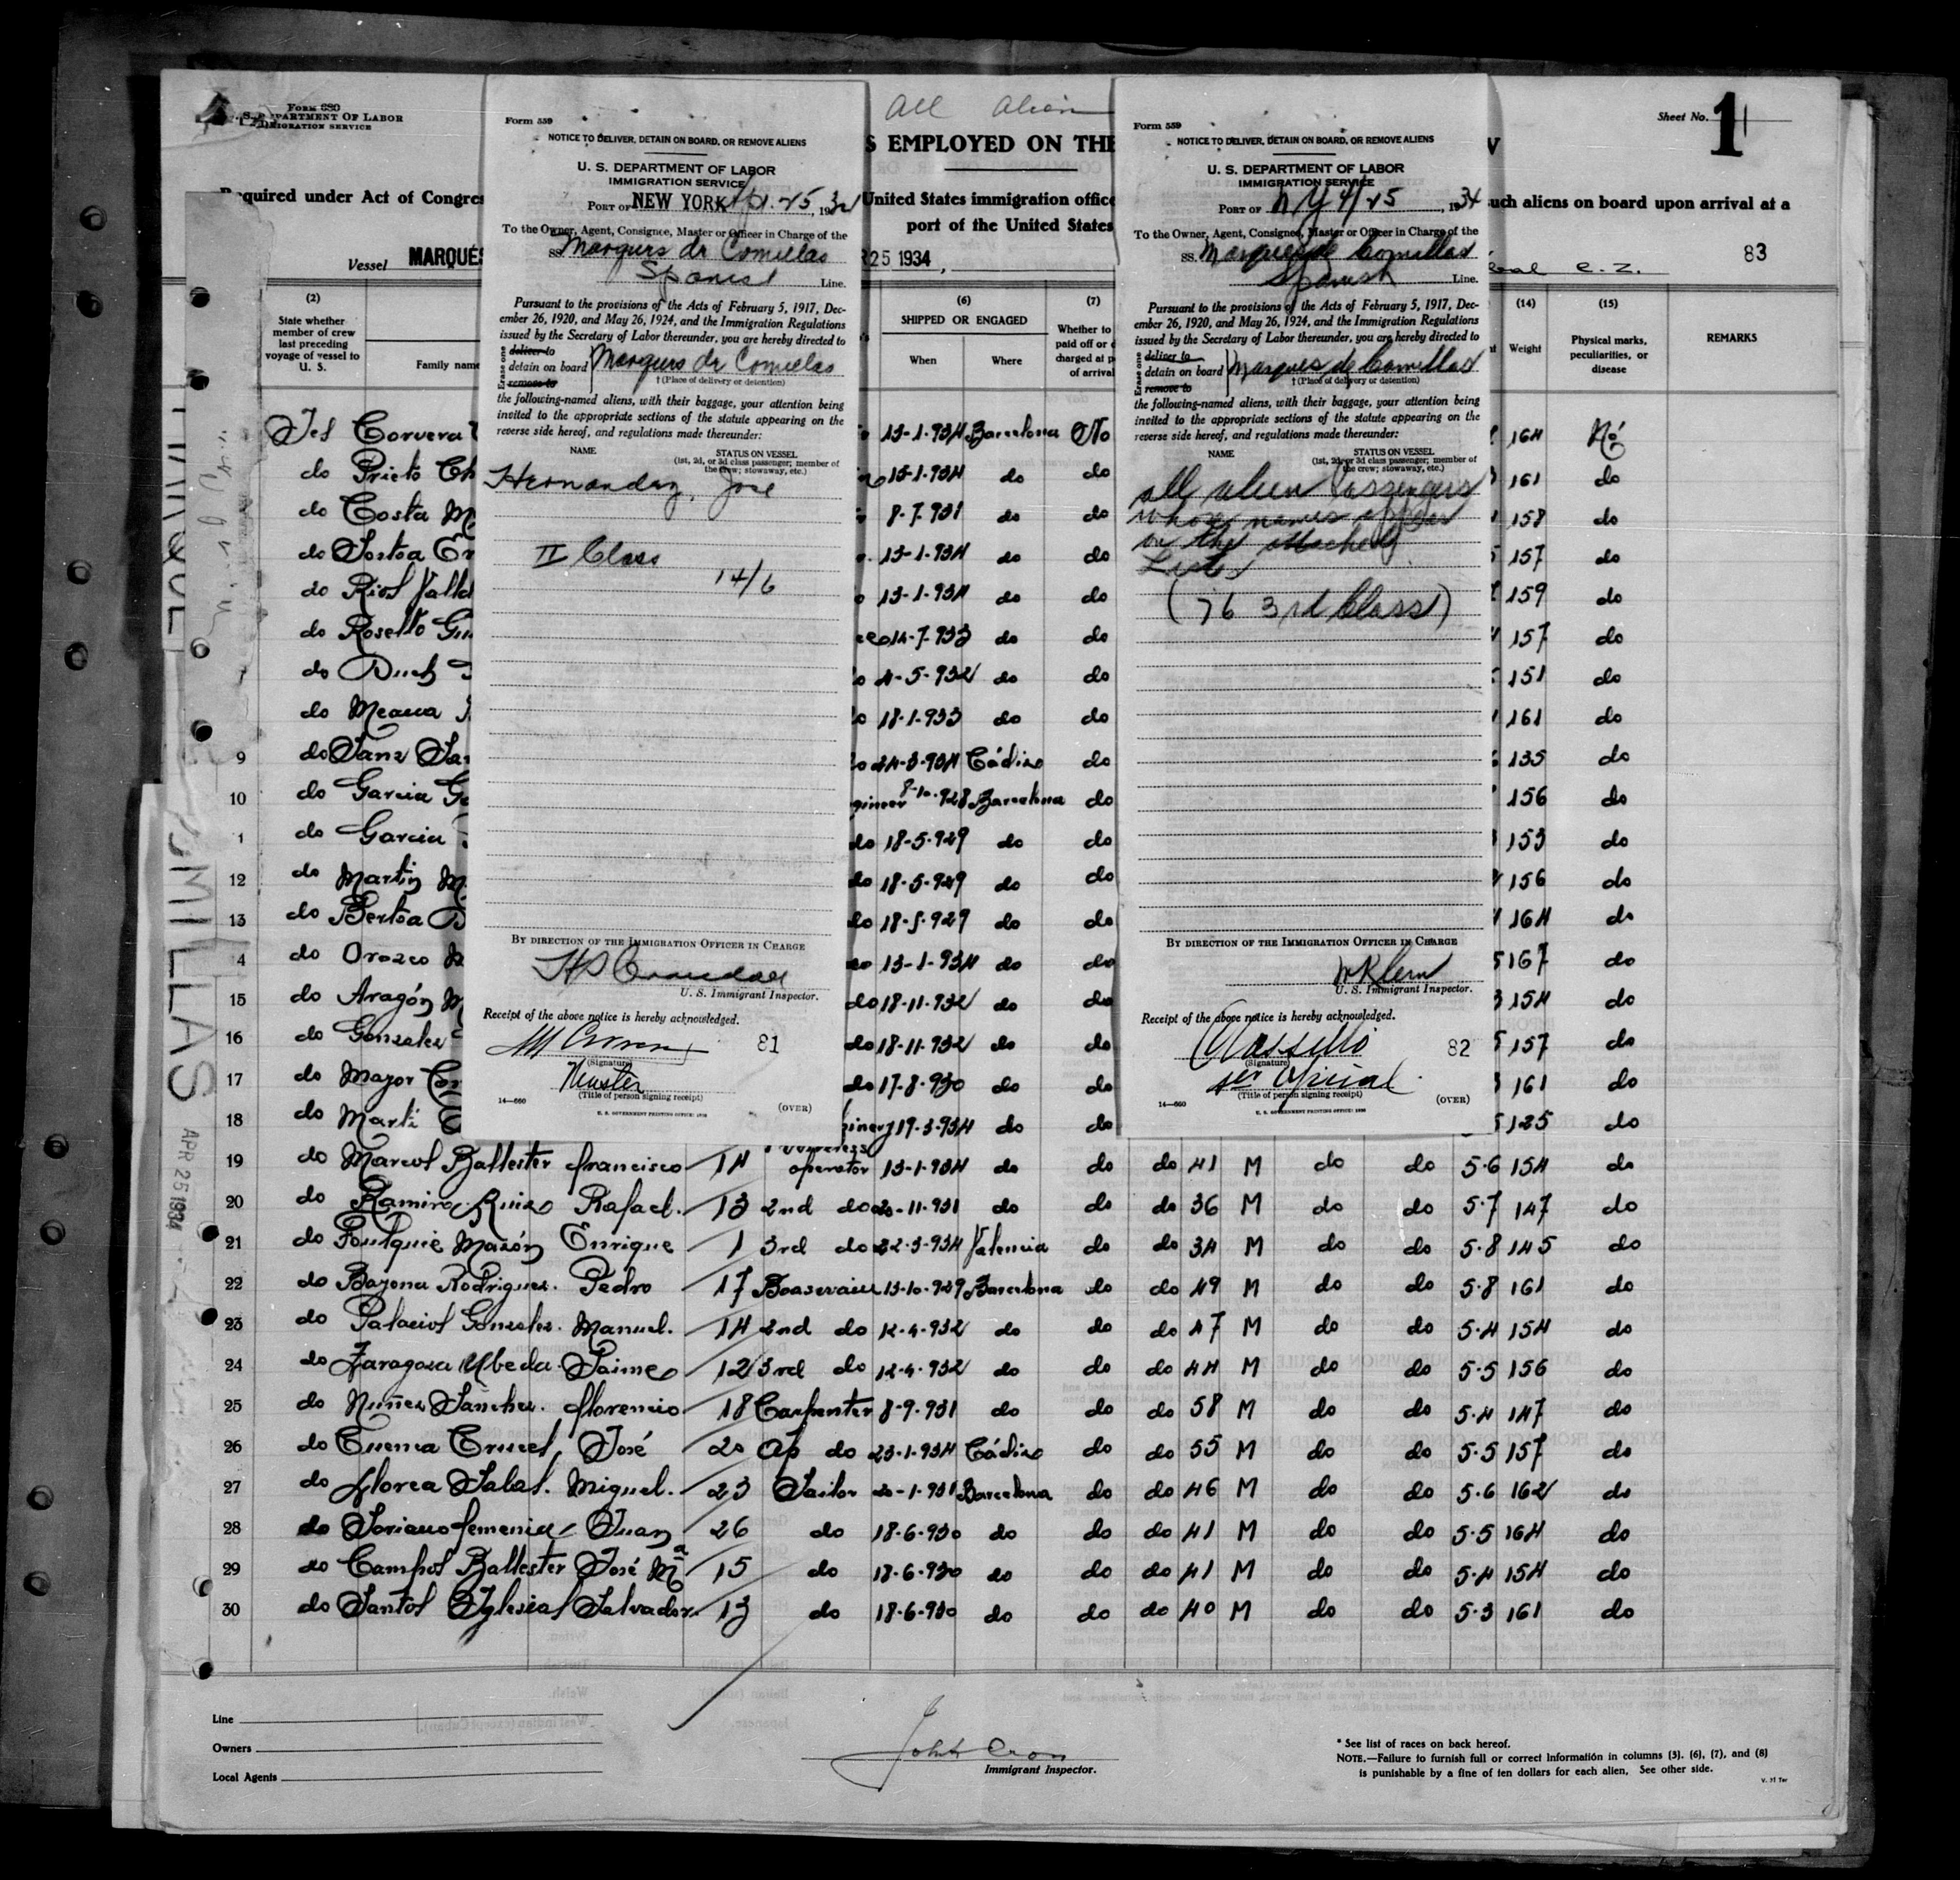 Form 680
U. S. DEPARTMENT OF LABOR
IMMIGRATION SERVICE
Required under Act of Congres
Vessel MARQUÉS
(2)
State whether
member of crew
last preceding
voyage of vessel to
U. S.
Family name
Form 559
NOTICE TO DELIVER, DETAIN ON BOARD, OR REMOVE ALIENS
U. S. DEPARTMENT OF LABOR
IMMIGRATION SERVICE
PORT OF NEW YORK Apr. 25, 1934
To the Owner, Agent, Consignee, Master or Officer in Charge of the
SS. Marques de Comillas
Spanish Line.
Pursuant to the provisions of the Acts of February 5, 1917, Dec-
ember 26, 1920, and May 26, 1924, and the Immigration Regulations
issued by the Secretary of Labor thereunder, you are hereby directed to
Erase one
deliver to
detain on board
remove to
Marques de Comillas
† (Place of delivery or detention)
the following-named aliens, with their baggage, your attention being
invited to the appropriate sections of the statute appearing on the
reverse side hereof, and regulations made thereunder:
NAME
STATUS ON VESSEL
(1st, 2d, or 3d class passenger; member of
the crew; stowaway, etc.)
Hernandez, Jose
II Class
14/6
BY DIRECTION OF THE IMMIGRATION OFFICER IN CHARGE
U. S. Immigrant Inspector.
Receipt of the above notice is hereby acknowledged.
81
(Signature)
(Title of person signing receipt)
14—660
U. S. GOVERNMENT PRINTING OFFICE:
(OVER)
All Alien
S EMPLOYED ON THE
United States immigration office
port of the United States
R 25 1934,
(6)
SHIPPED OR ENGAGED
When
Where
(7)
Whether to
paid off or
charged at p
of arrival
Form 559
NOTICE TO DELIVER, DETAIN ON BOARD, OR REMOVE ALIENS
U. S. DEPARTMENT OF LABOR
IMMIGRATION SERVICE
PORT OF N Y 4/25, 1934
To the Owner, Agent, Consignee, Master or Officer in Charge of the
SS. Marques de Comillas
Spanish Line.
Pursuant to the provisions of the Acts of February 5, 1917, Dec-
ember 26, 1920, and May 26, 1924, and the Immigration Regulations
issued by the Secretary of Labor thereunder, you are hereby directed to
Erase one
deliver to
detain on board
remove to
Marques de Comillas
† (Place of delivery or detention)
the following-named aliens, with their baggage, your attention being
invited to the appropriate sections of the statute appearing on the
reverse side hereof, and regulations made thereunder:
NAME
STATUS ON VESSEL
(1st, 2d, or 3d class passenger; member of
the crew; stowaway, etc.)
all alien Passengers
whose names appear
on the attached
List
(76 3rd Class)
BY DIRECTION OF THE IMMIGRATION OFFICER IN CHARGE
U. S. Immigrant Inspector.
Receipt of the above notice is hereby acknowledged.
82
(Signature)
(Title of person signing receipt)
14—660
U. S. GOVERNMENT PRINTING OFFICE:
(OVER)
Sheet No. 1
such aliens on board upon arrival at a
C. Z.
83
(14)
Weight
(15)
Physical marks,
peculiarities, or
disease
REMARKS
Yes Corvera 13-1-934 Barcelona No 164 No
do Prieto 13-1-934 do do 161 do
do Costa 8-7-931 do do 158 do
do 13-1-934 do do 157 do
do Rios 13-1-934 do do 159 do
do Roselló 14-7-933 do do 157 do
do Duch 4-5-932 do do 151 do
do Meana 18-1-933 do do 161 do
9 do Sanz 24-3-934 Cádiz do 135 do
10 do Garcia 8-10-928 Barcelona do 156 do
1 do Garcia do 18-5-929 do do 153 do
12 do Martin do 18-5-929 do do 156 do
13 do Bertoa do 18-5-929 do do 164 do
4 do Orozco do 13-1-934 do do 167 do
15 do Aragón do 18-11-932 do do 154 do
16 do Gonzalez do 18-11-932 do do 157 do
17 do Mayor do 17-8-930 do do 161 do
18 do Marti 19-3-934 do do 125 do
19 do Marcos Ballester Francisco 14 wireless operator 13-1-934 do do do 41 M do do 5-6 154 do
20 do Ramirez Ruiz Rafael. 13 2nd do 20-11-931 do do do 36 M do do 5-7 147 do
21 do Foulquie Mazón Enrique 1 3rd do 22-3-934 Valencia do do 34 M do do 5-8 145 do
22 do Bayona Rodriguez. Pedro 17 13-10-929 Barcelona do do 49 M do do 5-8 161 do
23 do Palacios Gonzalez. Manuel. 14 2nd do 12-4-932 do do do 47 M do do 5-4 154 do
24 do Zaragoza Ubeda. Jaime 12 3rd do 12-4-932 do do do 44 M do do 5-5 156 do
25 do Nuñez Sanchez. Florencio 18 Carpenter 8-9-931 do do do 58 M do do 5-4 147 do
26 do Cuenca Cruces, José 20 do 23-1-934 Cádiz do do 55 M do do 5-5 157 do
27 do Llorca Salas. Miguel. 23 Sailor 20-1-931 Barcelona do do 46 M do do 5-6 162 do
28 do Soriano Femenia Juan 26 do 18-6-930 do do do 41 M do do 5-5 164 do
29 do Campos Ballester José Mª 15 do 18-6-930 do do do 41 M do do 5-4 154 do
30 do Santos Iglesias Salvador. 13 do 18-6-930 do do do 40 M do do 5-3 161 do
APR 25 1934
Line
Owners
Local Agents
John Cron
Immigrant Inspector.
* See list of races on back hereof.
NOTE.—Failure to furnish full or correct information in columns (3), (6), (7), and (8)
is punishable by a fine of ten dollars for each alien. See other side.